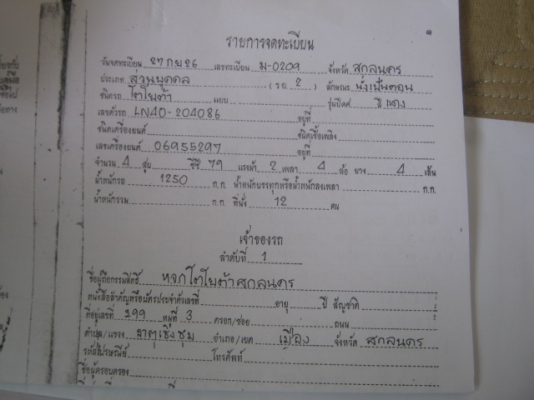 รายการจดทะเบียน
วันจดทะเบียน 27 กพ 26 เลขทะเบียน ม-0209 จังหวัด สกลนคร
ประเภท ส่วนบุคคล (รย 2) ลักษณะ นั่งสองตอน
ชนิดรถ โตโยต้า แบบ รุ่นปีคศ สี
เลขตัวรถ LN40-204086 อยู่ที่
ชนิดเครื่องยนต์ ชนิดเชื้อเพลิง
เลขเครื่องยนต์ 06955297 อยู่ที่
จำนวน 4 สูบ 79 แรงม้า 2 เพลา 4 ล้อ ยาง 4 เส้น
น้ำหนักรถ 1250 ก.ก. น้ำหนักบรรทุกหรือน้ำหนักลงเพลา ก.ก.
น้ำหนักรวม ก.ก. ที่นั่ง 12 คน
เจ้าของรถ
ลำดับที่ 1
ชื่อผู้ถือกรรมสิทธิ์ หจก โตโยต้าสกลนคร
หนังสือสำคัญหรือบัตรประจำตัวเลขที่ อายุ ปี สัญชาติ
ที่อยู่เลขที่ 399 หมู่ที่ 3 ตรอก/ซอย ถนน
ตำบล/แขวง ธาตุเชิงชุม อำเภอ/เขต เมือง จังหวัด สกลนคร
รหัสไปรษณีย์ โทรศัพท์
ชื่อผู้ครอบครอง